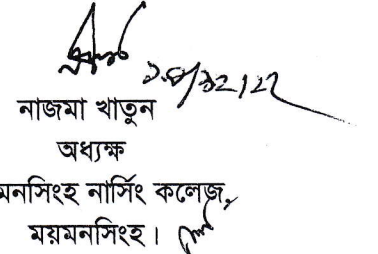 নাজমা খাতুন
অধ্যক্ষ
মনসিংহ নার্সিং কলেজ,
ময়মনসিংহ।